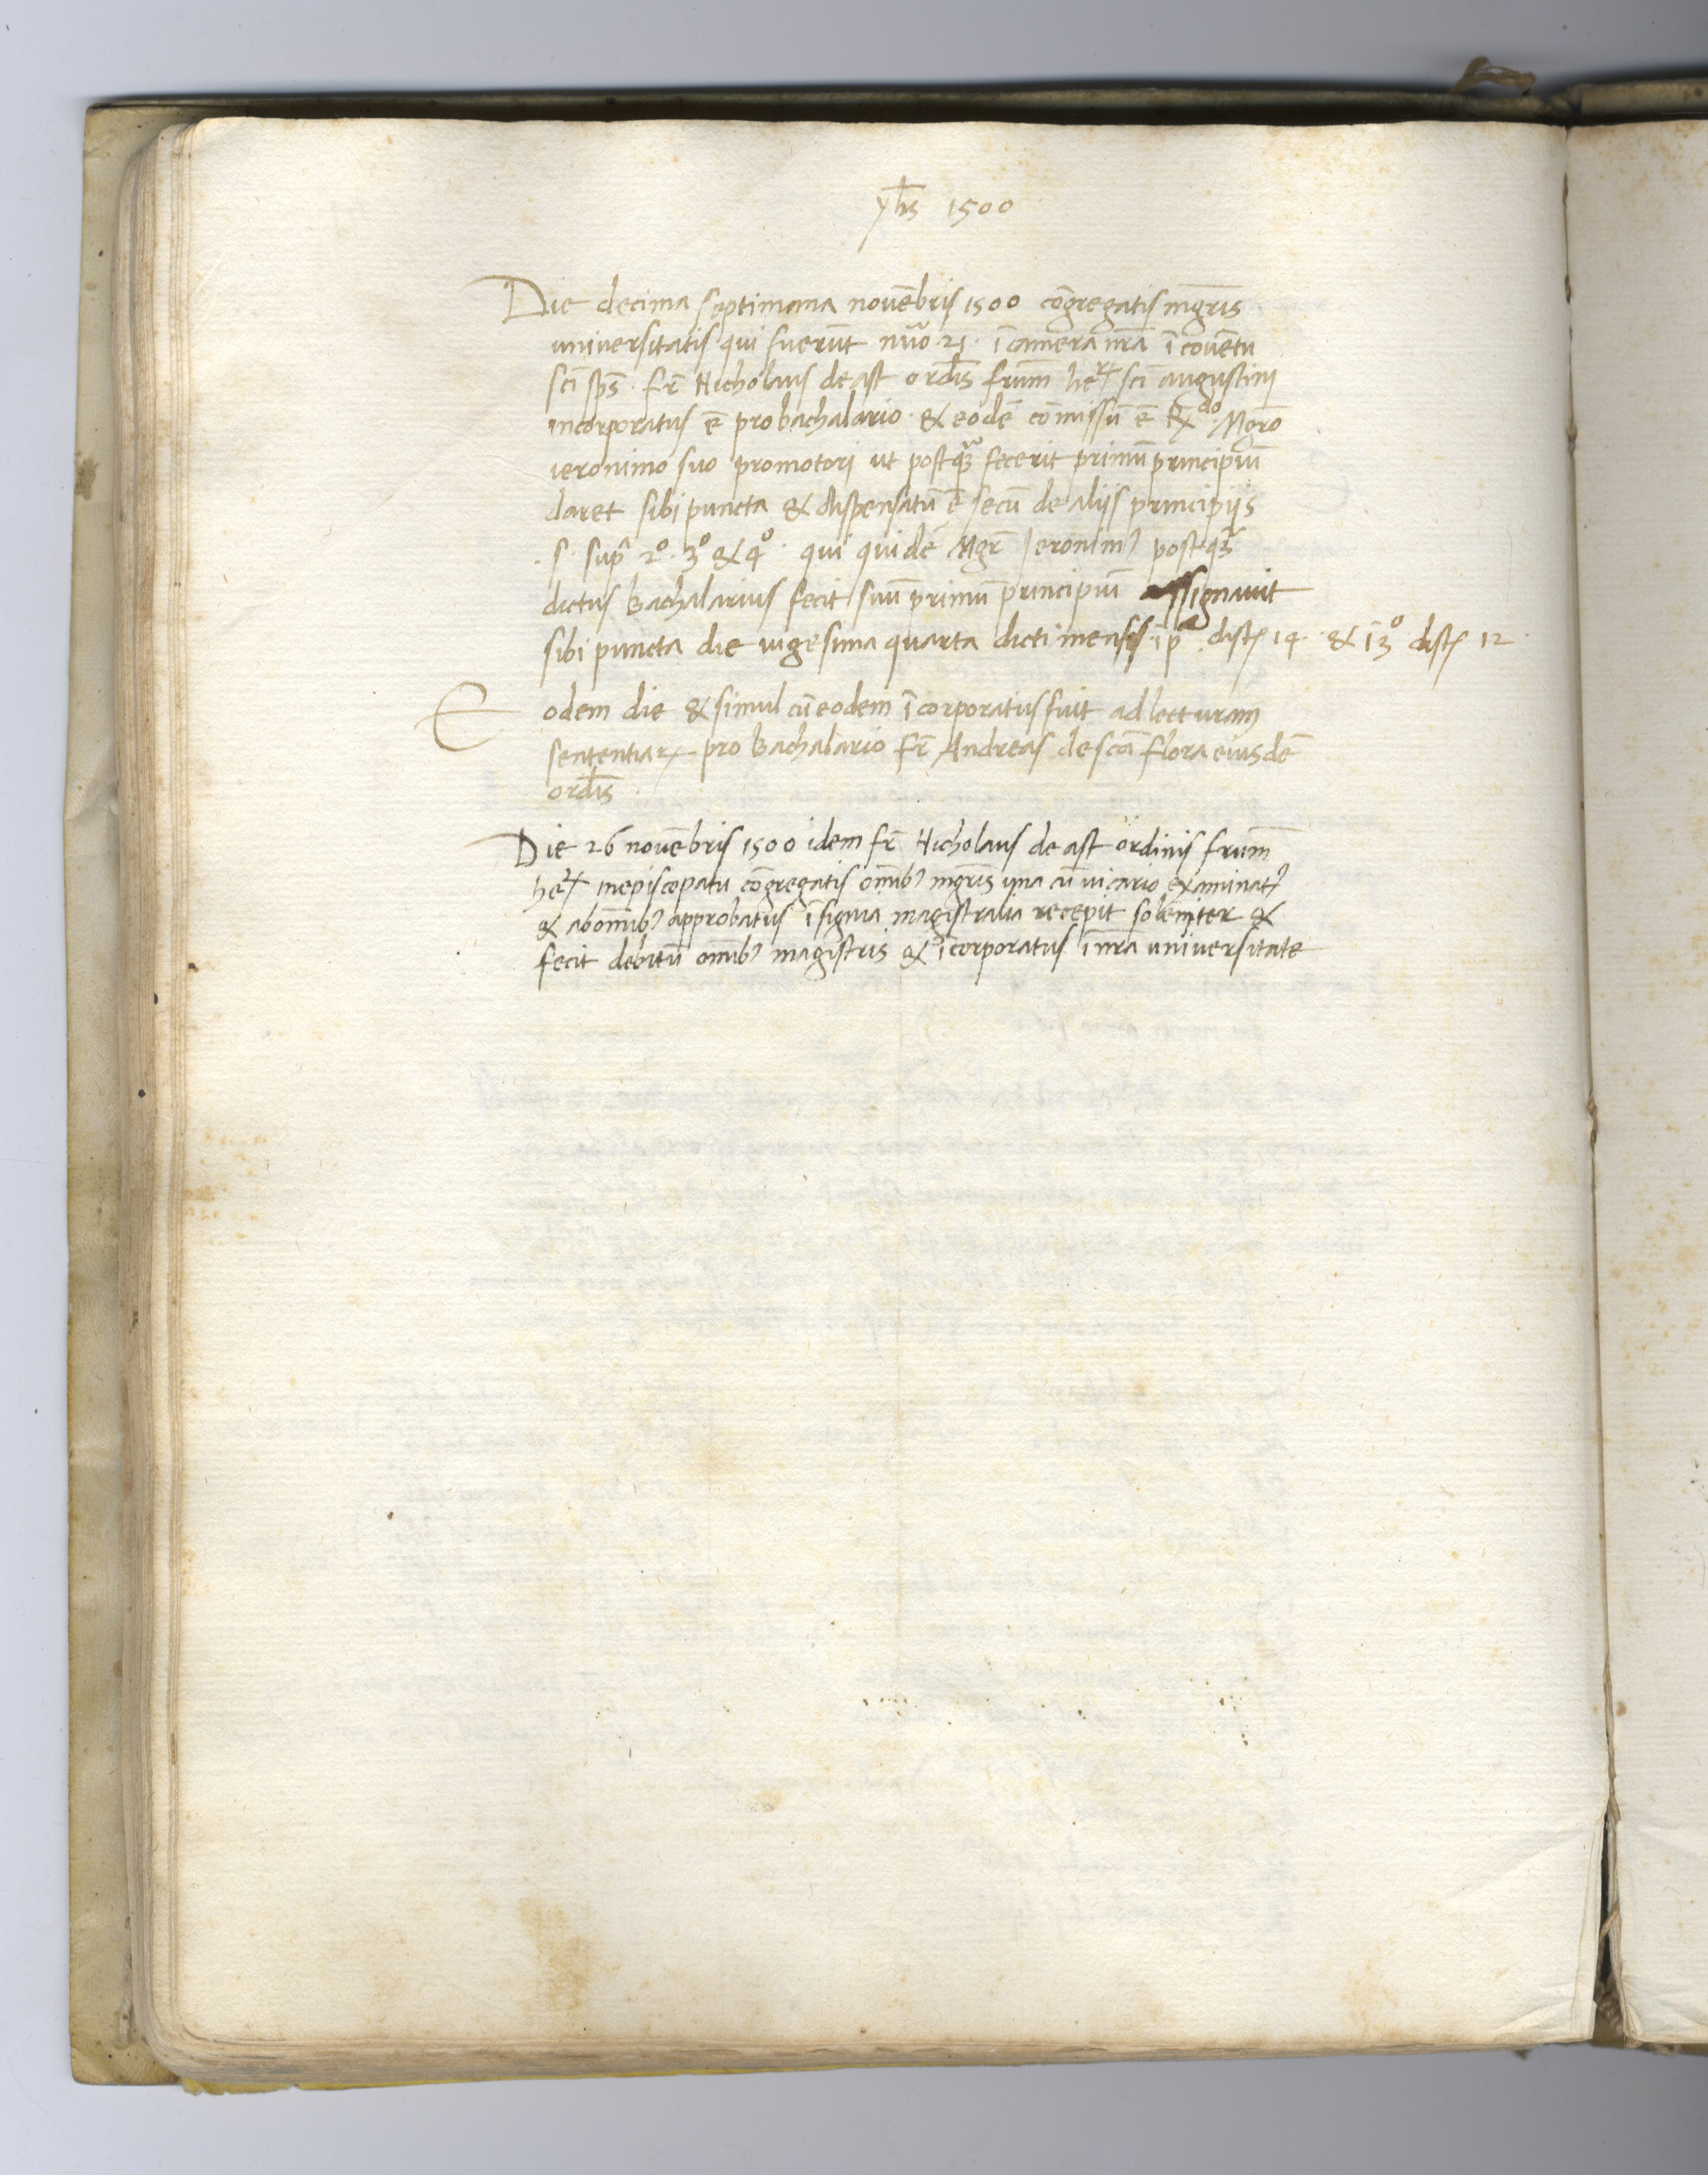 yh̄s 1500
Die decima septimana novēbris 1500 cōgregatis mgr̄is
universitatis qui fuerūt nūo 21 · ī camera nr̄a ī covētu
sci sp̄s · fr̄ Nicholaus de ast ord̄is frūm heꝝ sci augustini
incorporatus ē pro bachalario · & eodē cōmissū ē Rdo Mgrō
ieronimo suo promotori ut postqȝ fecerit primū principiū
daret sibi puncta & dispensatū ē secū de aliis principijs
· s · sup̄ 2º · 3º & 4º · qui quidē Mgr̄ Jeronimꝰ postqȝ
dictus bachalarius fecit suū primū principiū assignavit
sibi puncta die vigesima quarta dicti mensis · ī pº distꝭ 14 · & ī 3º distꝭ 12 ·
Eodem die & simul cū eodem īcorporatus fuit ad lecturam
sententiaꝝ pro bachalario fr̄ Andreas de scā flora eiusdē
ord̄is ·
Die 26 novēbris 1500 idem fr̄ Nicholaus de ast ordinis frūm
heꝝ in episcopatu cōgregatis omībꝰ mgr̄is una cū vicario examinatꝰ
& ab omībꝰ approbatus īsignia magistralia recepit solēniter &
fecit debitū omībꝰ magistris & īcorporatus ī nr̄a universitate